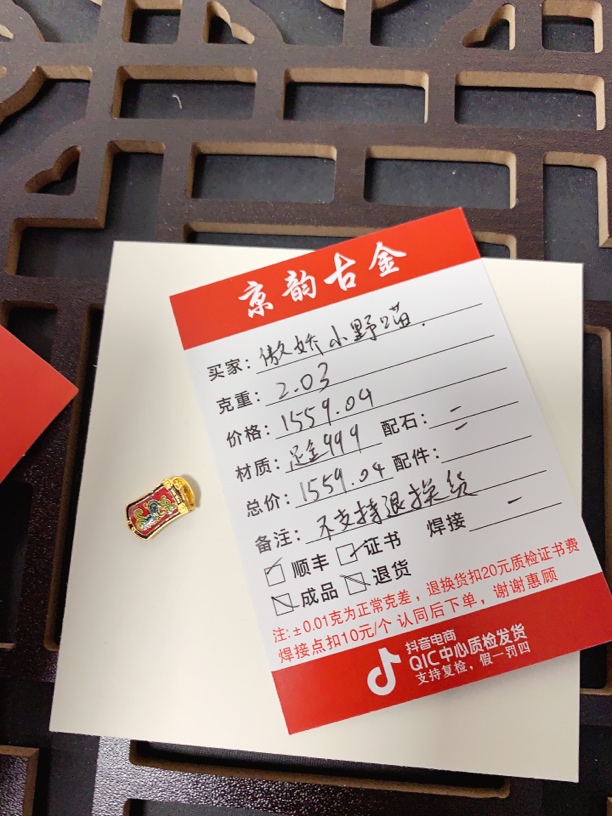 京韵古金
买家：傲娇小野猫.
克重：2.03
价格：1559.04
材质：足金999 配石：
总价：1559.04 配件：
备注：不支持退换货
顺丰 证书 焊接
成品 退货
注:±0.01克为正常克差，退换货扣20元质检证书费
焊接点扣10元/个 认同后下单，谢谢惠顾
抖音电商
QIC中心质检发货
支持复检，假一罚四